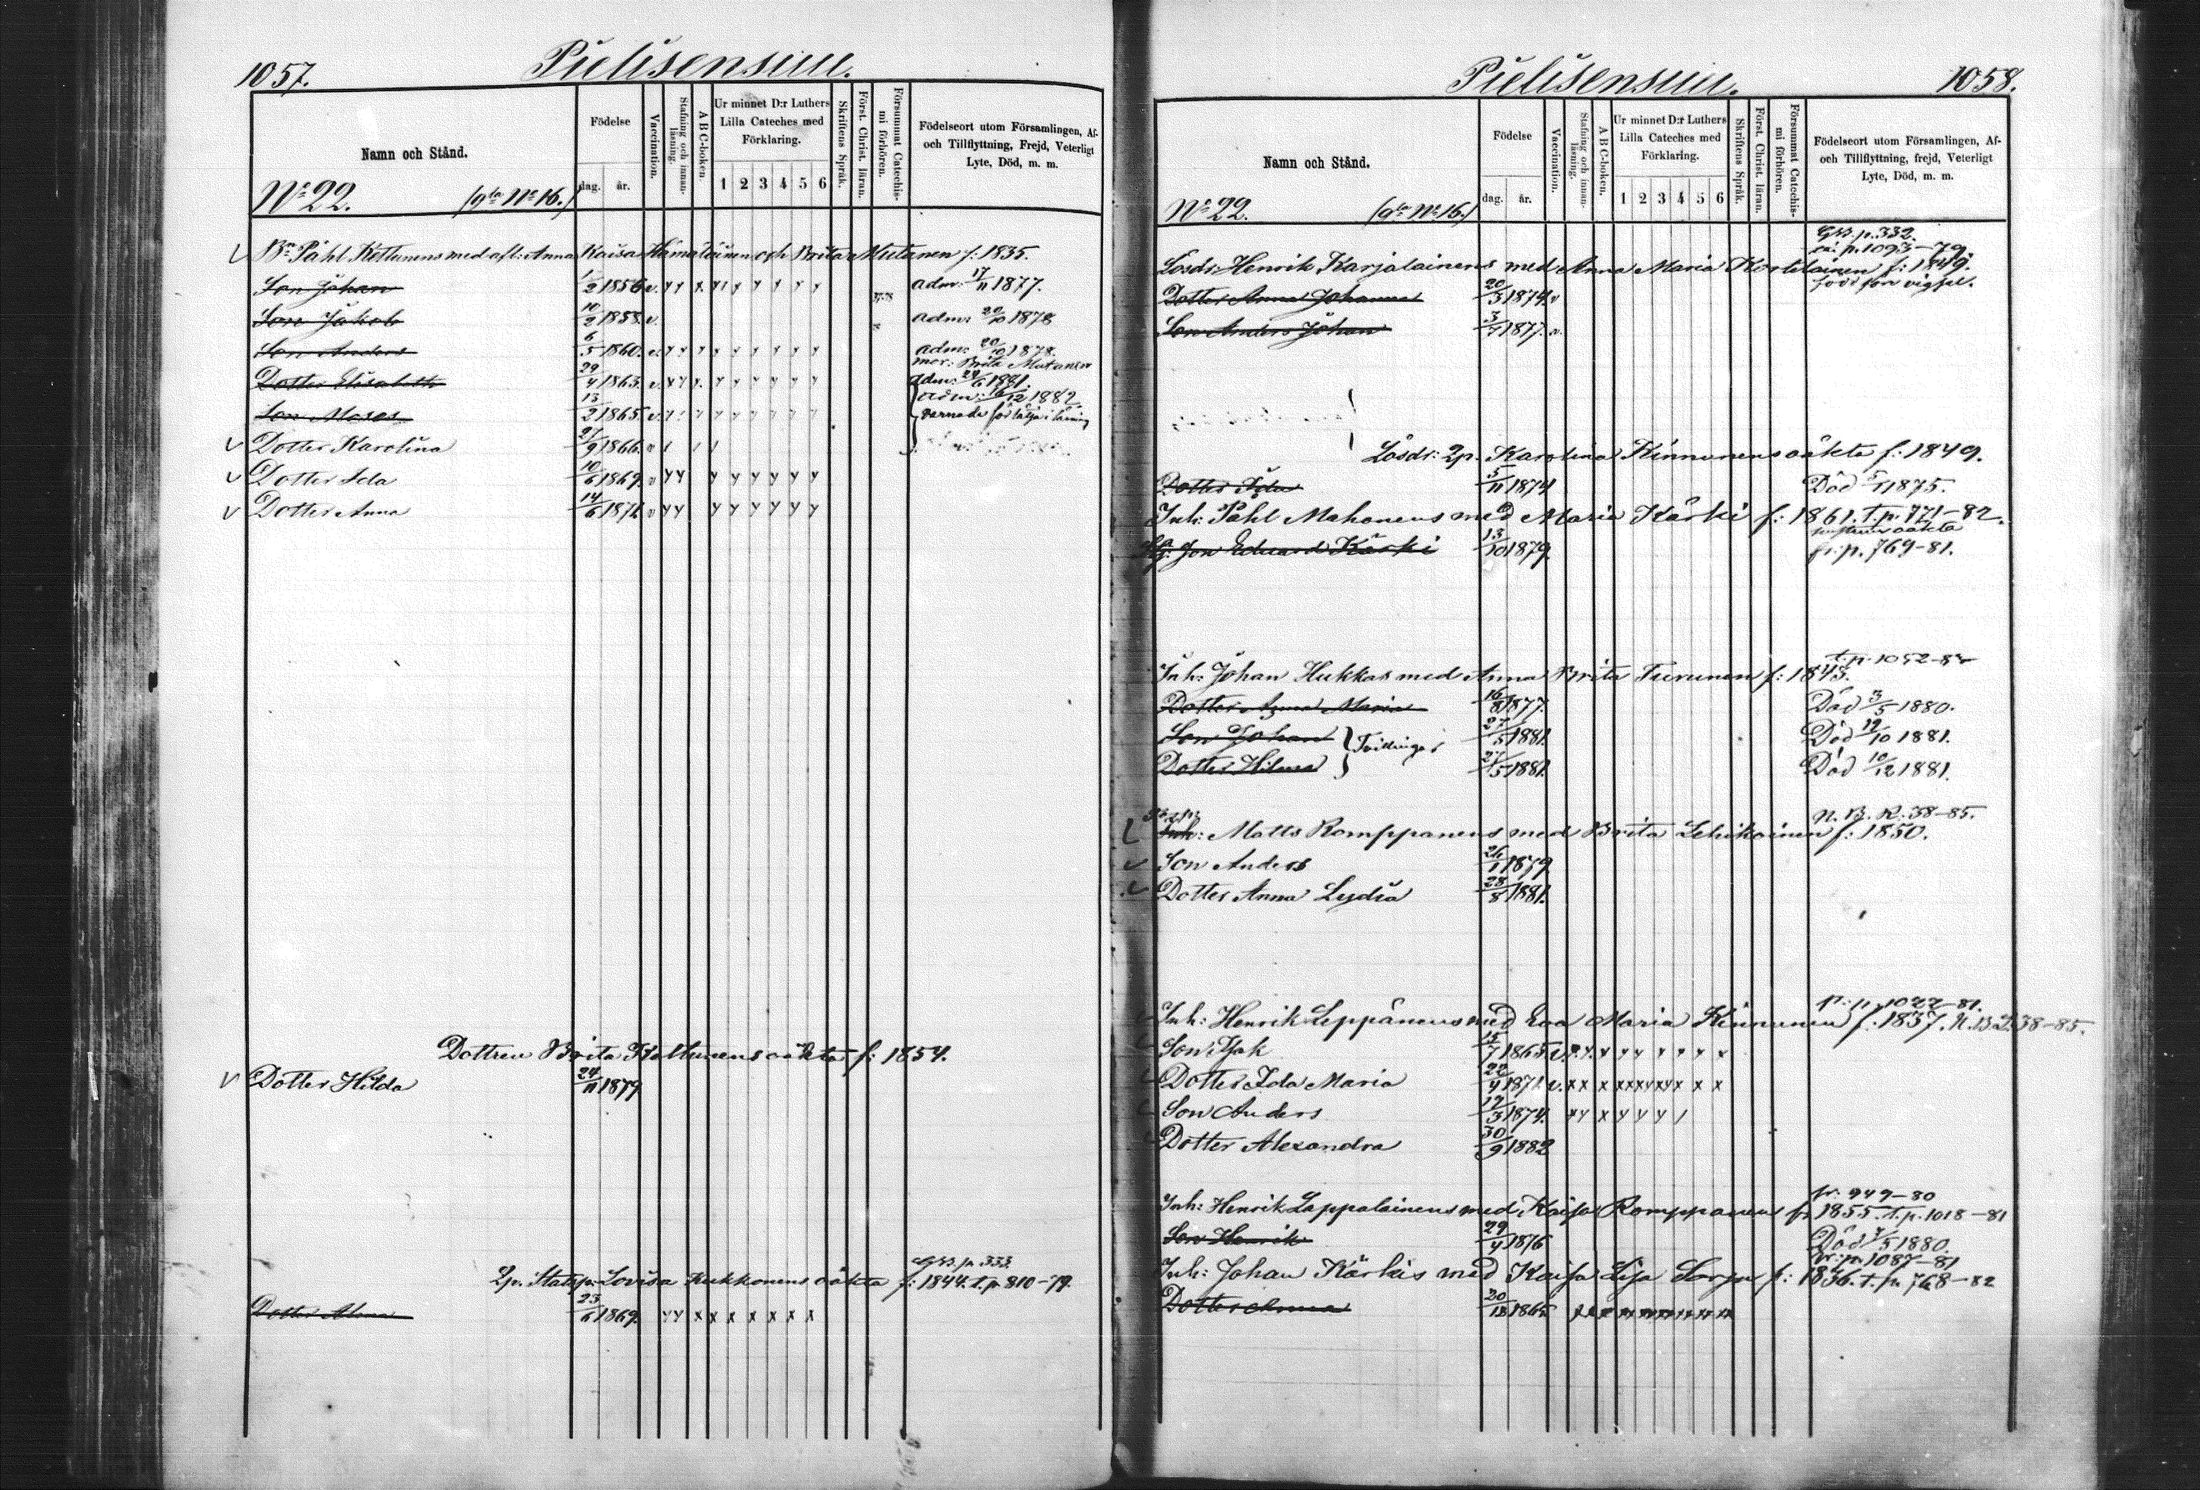 1057.
Pielisensuu.
Namn och Stånd.
Födelse
dag.
år.
Vaccination.
Stafning och innan-läsning.
A B C-boken.
Ur minnet D:r Luthers Lilla Cateches med Förklaring.
1 2 3 4 5 6
Skriftens Språk.
Först. Christ. läran.
Försummat Catechis-mi förhören.
Födelseort utom Församlingen, Af- och Tillflyttning, Frejd, Veterligt Lyte, Död, m. m.
No 22. (gla No 16.)
Bn Påhl Kettunens med afl: Anna Kaisa Hämäläinen och Brita Mutanen f: 1835.
Son Johan 1/2 1856 v. adm: 17/11 1877.
Son Jakob 10/2 1858. v. adm: 20/10 1878
Son Anders 6/5 1860. v. adm: 20/10 1878.
mor: Brita Mutanen
Dotter Elisabeth 29/4 1863. v. adm: 1881.
Son Moses 13/2 1865. v. adm: 1882
Dotter Karolina 27/9 1866. v
Dotter Ida 10/6 1869. v
Dotter Anna 14/6 1872 v
Dottren Brita Kettunens oäkta f: 1854.
Dotter Hilda 24/11 1879
GSB. p. 333
2p. Statsp: Lovisa Kukkonens oäkta f: 1844. t. p. 810-79.
Dotter Alma 23/6 1869.
Pielisensuu.
1058.
Namn och Stånd.
Födelse
dag.
år.
Vaccination.
Stafning och innan-läsning.
A B C-boken.
Ur minnet D:r Luthers Lilla Cateches med Förklaring.
1 2 3 4 5 6
Skriftens Språk.
Först. Christ. läran.
Försummat Catechis-mi förhören.
Födelseort utom Församlingen, Af- och Tillflyttning, frejd, Veterligt Lyte, Död, m. m.
No 22. (gla No 16.)
GSB. p. 332.
p. 1093-79.
Lösdr: Henrik Karjalainens med Anna Maria Kortelainen f: 1849.
Dotter Anna Johanna 20/3 1874. v född före vigsel.
Son Anders Johan 3/7 1877. v.
Lösdr: 2p. Karolina Kinnunens oäkta f: 1849.
Dotter Ida 5/11 1874 Död 1875.
Inh: Påhl Mahonens med Maria Kärki f: 1861. T. p. 771-82.
hustruns oäkta
Son Eduard Kärki 13/10 1879. fr: p. 769-81.
t. p. 1052-82
Inh: Johan Hukkas med Anna Brita Turunen f: 1843.
Dotter Anna Maria 16/8 1877. Död 3/5 1880.
Son Johan } Tvillingar 27/5 1881. Död 19/10 1881.
Dotter Hilma } 27/5 1881. Död 10/12 1881.
N. B. K. 38-85.
Inh: Matts Romppanens med Brita Lehikoinen f: 1850.
Son Anders 26/1 1879
Dotter Anna Lydia 28/8 1881.
fr: p. 1022-81.
Inh: Henrik Leppänens med Eva Maria Kinnunen f: 1837. N. B. K. 38-85.
Son Isak 15/7 1865. v.
Dotter Ida Maria 22/4 1871. v.
Son Anders 12/3 1874.
Dotter Alexandra 30/9 1882
fr. 949-80
Inh: Henrik Lappalainens med Kaisa Romppanen f: 1855. t. p. 1018-81
Son Henrik 29/4 1876 Död 1880.
fr: p. 1087-81
Inh: Johan Kärkis med Kaisa Lisa Sorsa f: 1836. t. p. 768-82
Dotter Anna 20/12 1865